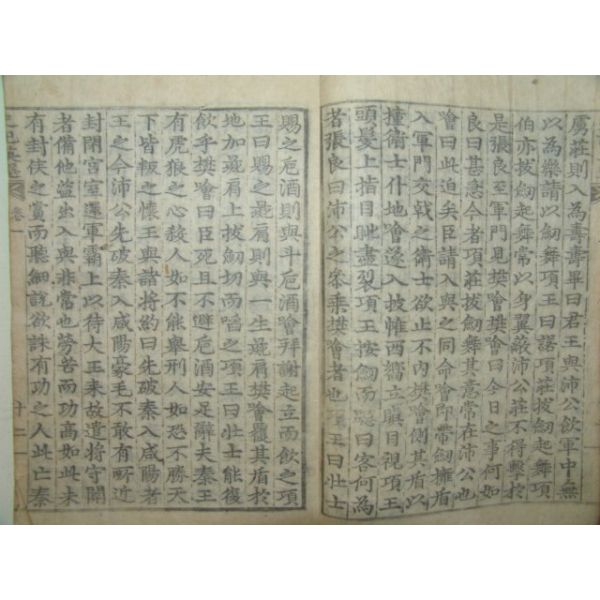 虜莊則入為壽壽畢曰君王與沛公飲軍中無
以為樂請以劒舞項王曰諾項莊拔劒起舞項
伯亦拔劒起舞常以身翼蔽沛公莊不得擊於
是張良至軍門見樊噲樊噲曰今日之事何如
良曰甚急今者項莊拔劒舞其意常在沛公也
噲曰此迫矣臣請入與之同命噲即帶劒擁盾
入軍門交戟之衛士欲止不內樊噲側其盾以
撞衛士仆地噲遂入披帷西嚮立瞋目視項王
頭髮上指目眦盡裂項王按劒而跽曰客何為
者張良曰沛公之參乘樊噲者也項王曰壯士
賜之卮酒則與斗卮酒噲拜謝起立而飲之項
王曰賜之彘肩則與一生彘肩樊噲覆其盾於
地加彘肩上拔劒切而啗之項王曰壯士能復
飲乎樊噲曰臣死且不避卮酒安足辭夫秦王
有虎狼之心殺人如不能舉刑人如恐不勝天
下皆叛之懷王與諸將約曰先破秦入咸陽者
王之今沛公先破秦入咸陽豪毛不敢有所近
封閉宮室還軍霸上以待大王來故遣將守關
者備他盜出入與非常也勞苦而功高如此未
有封侯之賞而聽細說欲誅有功之人此亡秦
卷一
十二